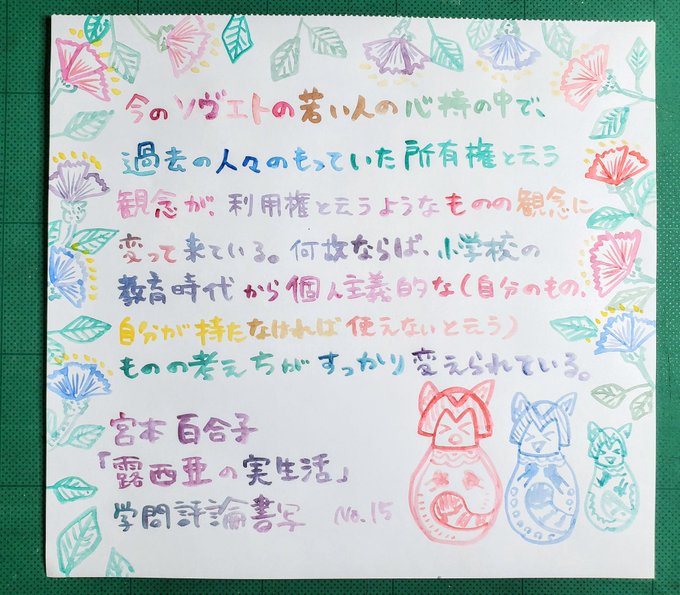 今のソヴェトの若い人の心持の中で、
過去の人々のもっていた所有権と云う
観念が、利用権と云うようなものの観念に
変って来ている。何故ならば、小学校の
教育時代から個人主義的な(自分のもの、
自分が持たなければ使えないと云う)
ものの考えちがすっかり変えられている。
宮本百合子
「露西亜の実生活」
学問評論書写 No.15